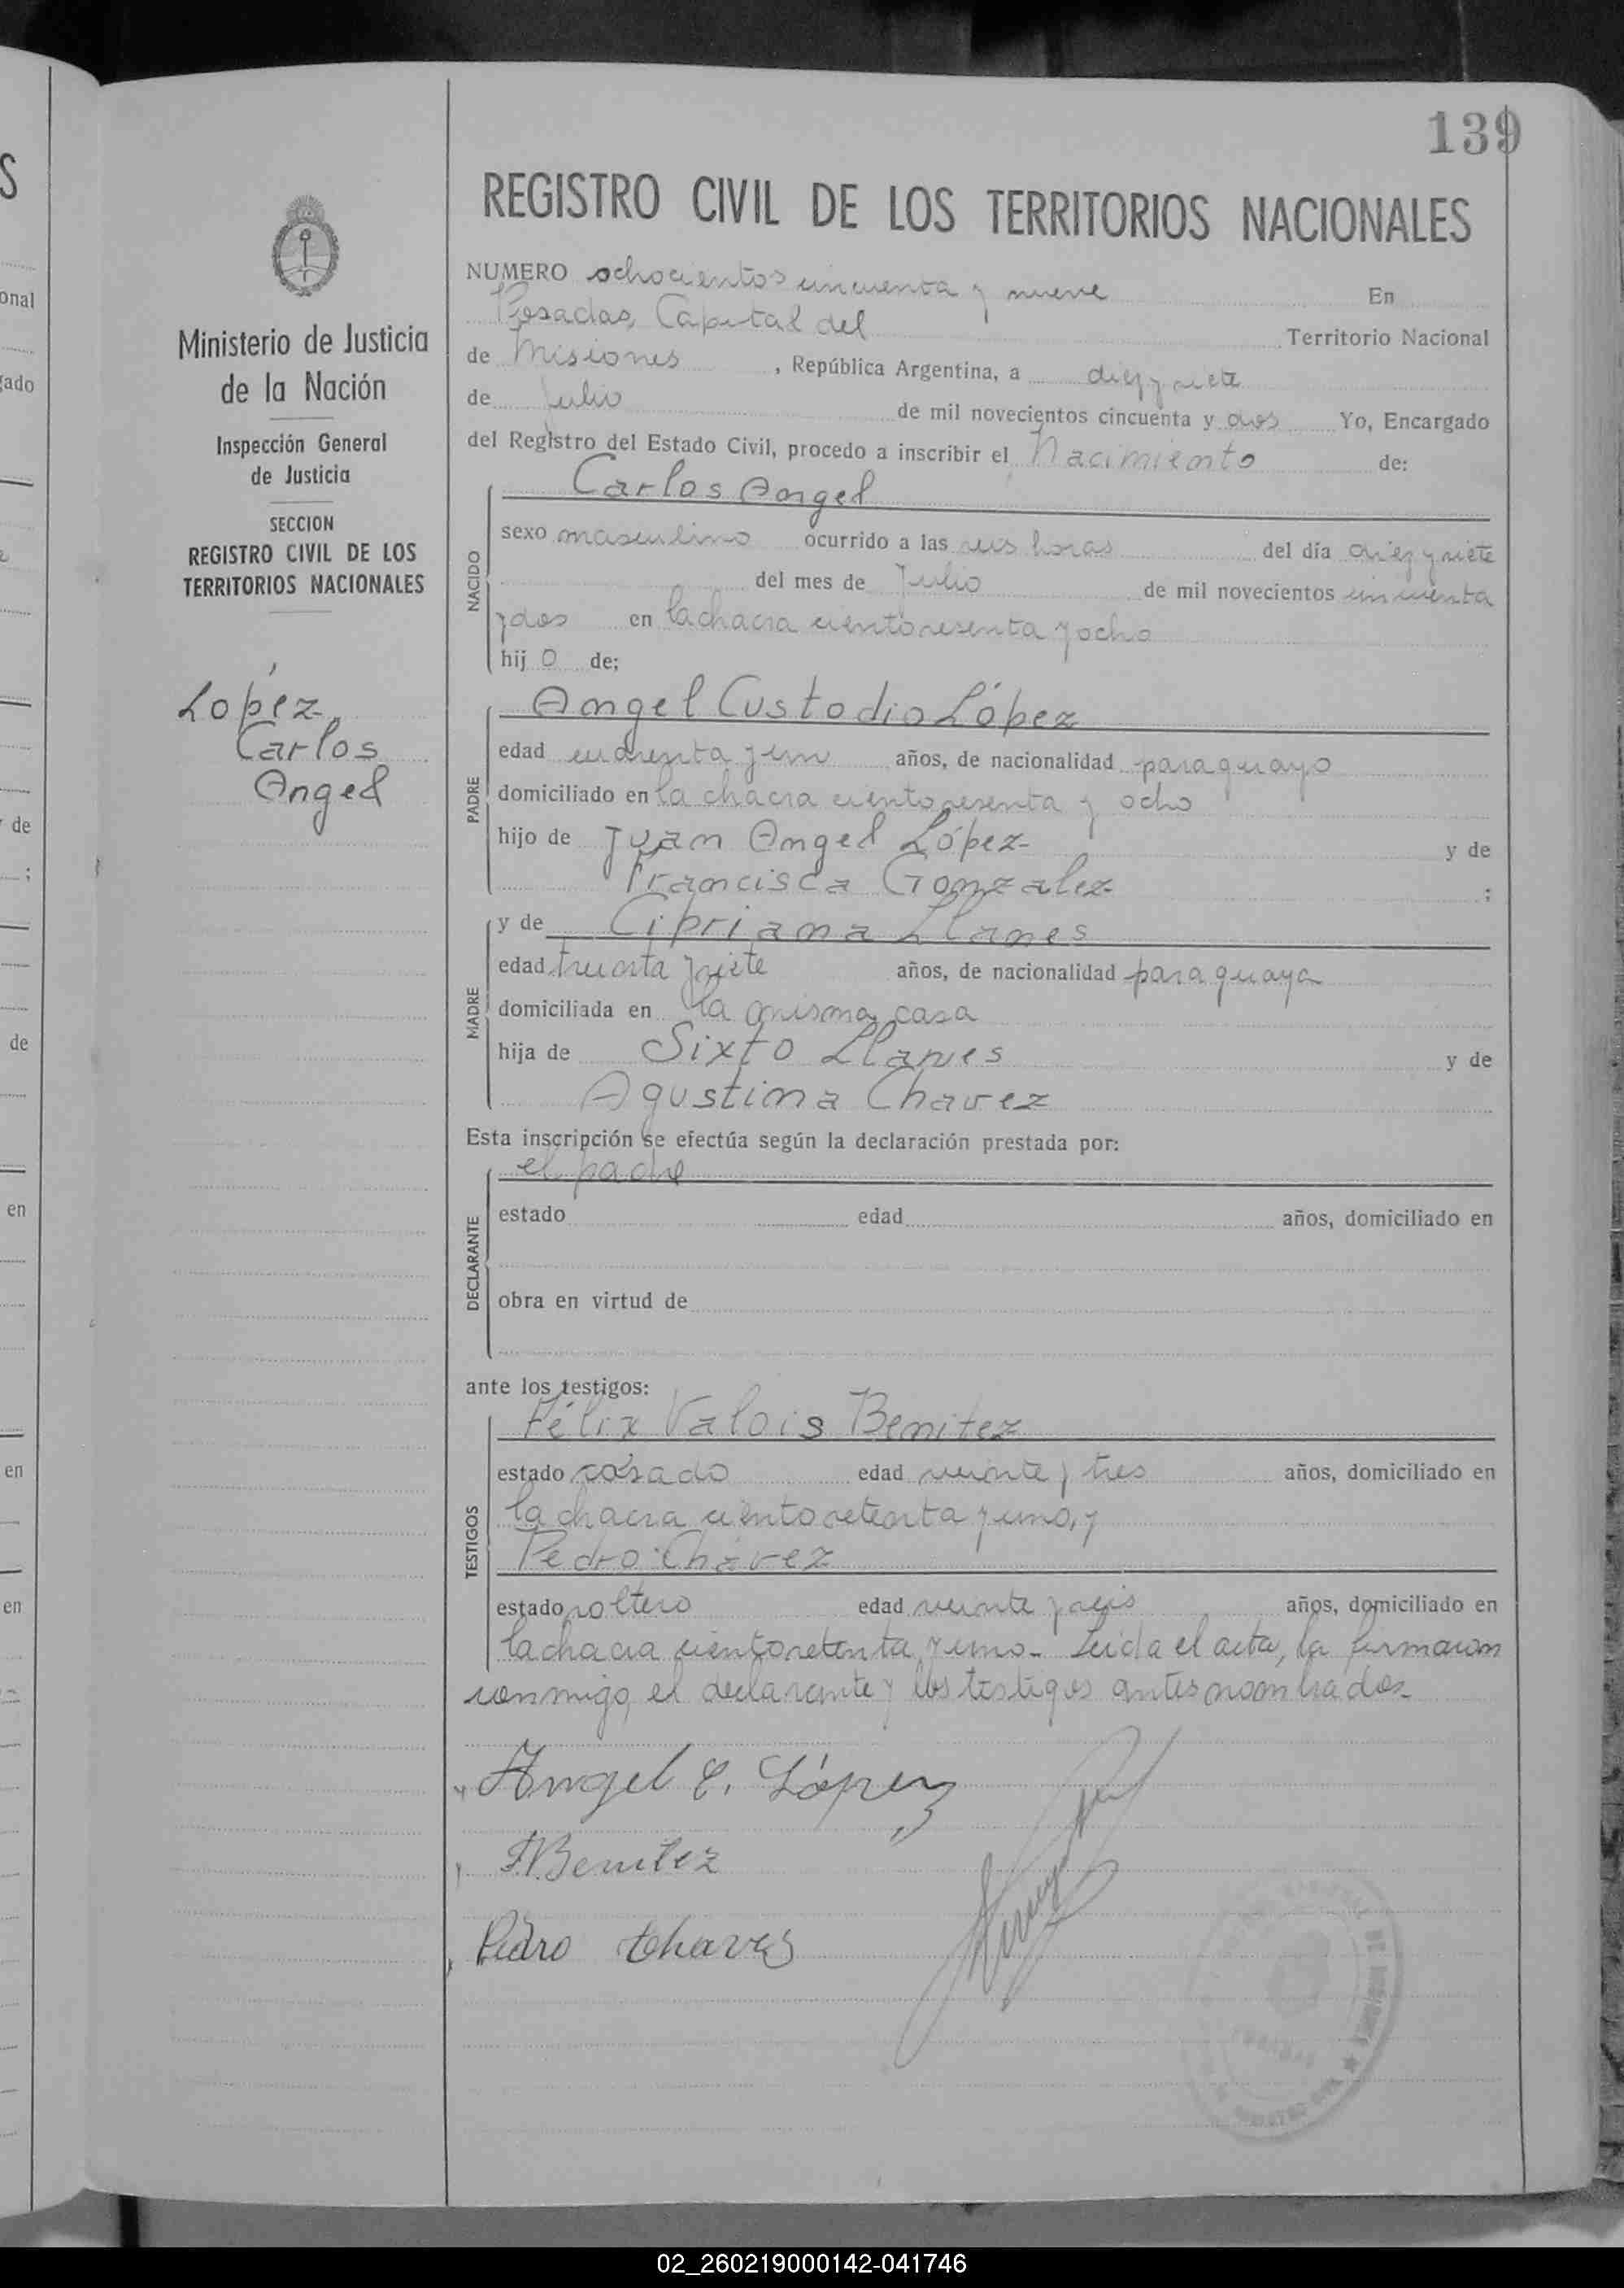 139
REGISTRO CIVIL DE LOS TERRITORIOS NACIONALES
Ministerio de Justicia
de la Nación
Inspección General
de Justicia
SECCION
REGISTRO CIVIL DE LOS
TERRITORIOS NACIONALES
López
Carlos
Angel
NUMERO ochocientos cincuenta y nueve En
Posadas, Capital del Territorio Nacional
de Misiones, República Argentina, a diez y siete
de Julio de mil novecientos cincuenta y dos Yo, Encargado
del Registro del Estado Civil, procedo a inscribir el Nacimiento de:
NACIDO
Carlos Angel
sexo masculino ocurrido a las seis horas del día diez y siete
del mes de Julio de mil novecientos cincuenta
y dos en la chacra ciento sesenta y ocho
hijo de;
PADRE
Angel Custodio López
edad cuarenta y un años, de nacionalidad paraguayo
domiciliado en la chacra ciento sesenta y ocho
hijo de Juan Angel López- y de
Francisca Gonzalez ;
MADRE
y de Cipriana Llanes
edad treinta y siete años, de nacionalidad paraguaya
domiciliada en la misma casa
hija de Sixto Llanes y de
Agustina Chavez
Esta inscripción se efectúa según la declaración prestada por:
DECLARANTE
el padre
estado edad años, domiciliado en
obra en virtud de
ante los testigos:
TESTIGOS
Félix Valois Benitez
estado casado edad veinte y tres años, domiciliado en
la chacra ciento setenta y uno, y
Pedro Chávez
estado soltero edad veinte y seis años, domiciliado en
la chacra ciento setenta y uno- Leida el acta, la firmaron
conmigo, el declarante y los testigos antes nombrados-
Angel C. López
F.V.Benitez
Pedro Chavez
onal
gado
de
;
de
en
en
en
02_260219000142-041746